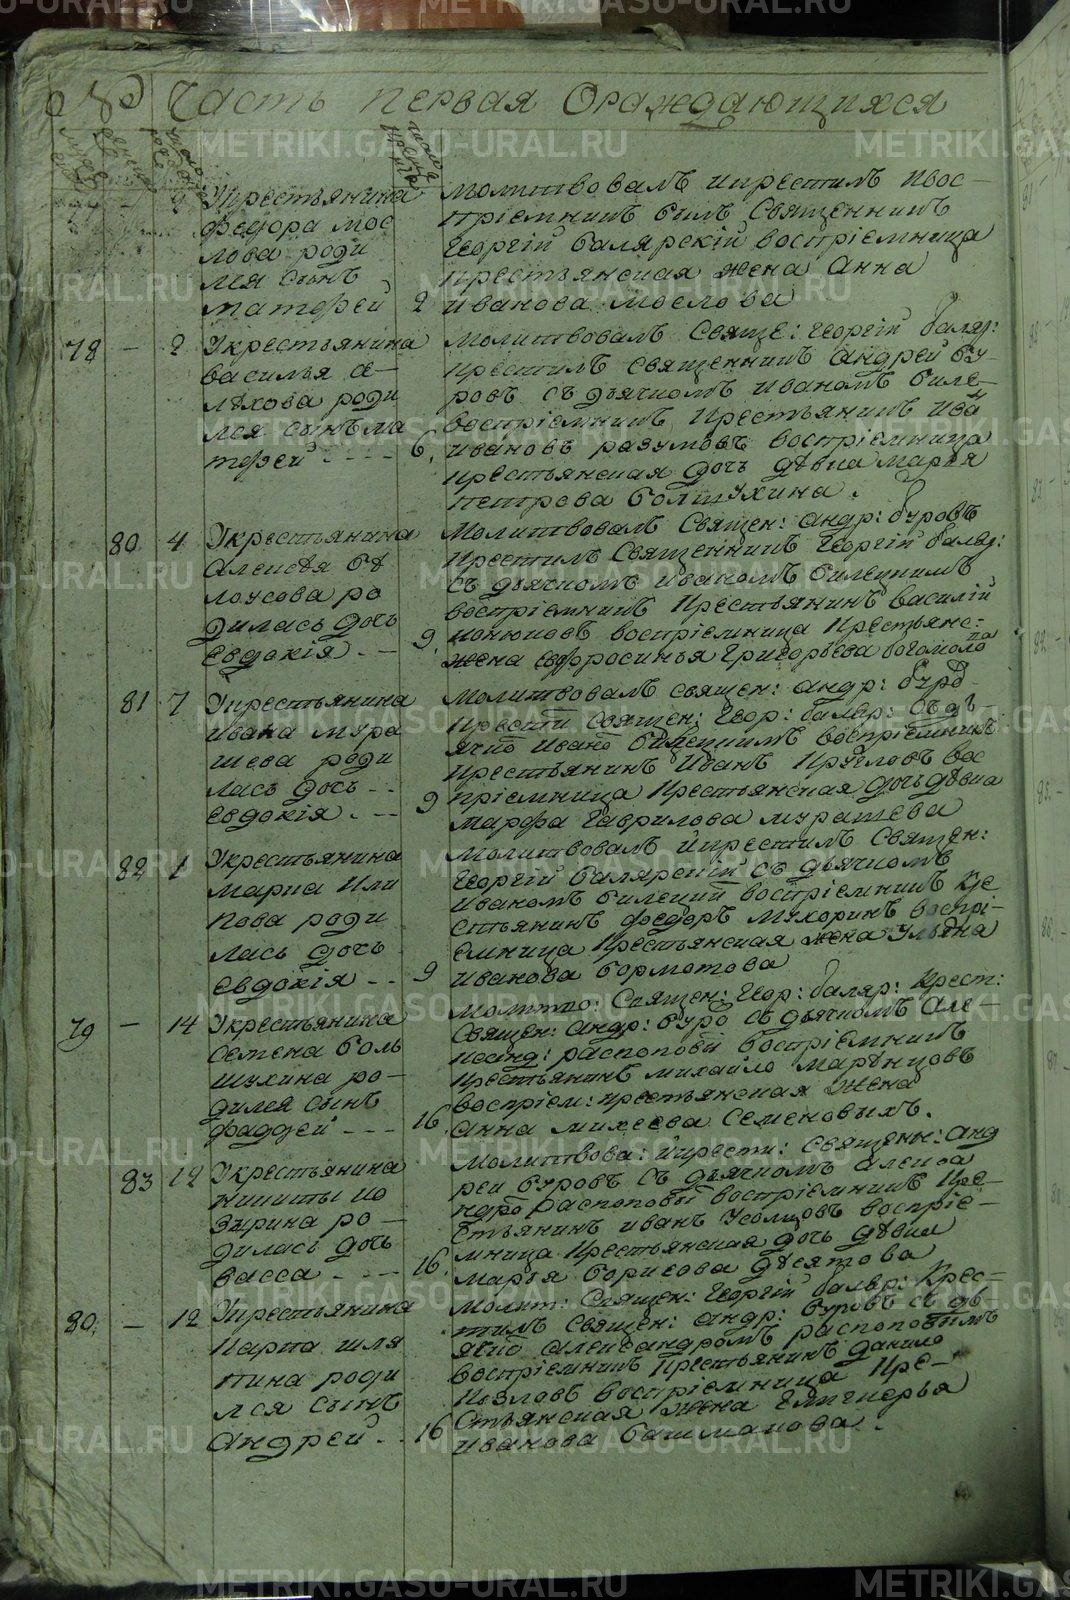 № Часть первая Ораждающихся
77 — 2 Укрестьянина
Федора мос
лова роди
лся сынъ
матфей 2
молитвовалъ икрестилъ ивос—
пріемникъ былъ Священникъ
Георгій балярскій воспріемница
крестьянская жена Анна
иванова мослова
78 — 2 Укрестьянина
василья а—
лѣхова роди
лся сынъ ма
тфей - - - - 6.
молитвовалъ Свяще: Георгій баляр:
крестилъ священникъ андрей бу—
ровъ съ дьячкомъ иваномъ биле—
воспріемникъ крестьянинъ ива
ивановъ разумовъ воспріемница
крестьянская дочь дѣвка марья
петрова болшухина.
80 4 Укрестьянина
алексѣя бѣ
лоусова ро
дилась дочь
евдокія. — 9.
Молитвовалъ Священ: андр: буровъ
крестилъ Священникъ Георгій баляр:
съ дьячкомъ иваномъ билецкимъ
воспріемникъ крестьянинъ василій
конюковъ воспріемница крестьянс:
жена ефросинья григорьева богомоло
81 7 Укрестьянина
ивана мура
шева роди
лась дочь - -
евдокія. — 9
молитвовалъ священ: андр: буро
крести священ: Геор: баляр: съ дь
ячко ивано билецкимъ воспріемникъ
крестьянинъ иванъ кругловъ вос
пріемница крестьянская дочь дѣвка
марфа гаврилова мурашева
82 1 Укрестьянина
марка или
пова роди
лась дочь
евдокія - - 9
молитвовалъ икрестилъ священ:
Георгій балярскій съ дьячкомъ
иваномъ билецкій воспріемникъ кре
стьянинъ федоръ мухоринъ воспрі—
емница крестьянская жена Ульяна
иванова бормотова
79 — 14 Укрестьянина
семена боль
шухина ро—
дился сынъ
фаддей - - - 16
молитво: Священ: Геор: баляр: крест:
Священ: андр: буро съ дьячкомъ але—
ксанд: распопови воспріемникъ
крестьянинъ михайло марѣнцовъ
воспріем: крестьянская жена
анна михеева Семеновыхъ.
83 12 Укрестьянина
никиты ко
зырина ро—
дилась дочь
васса - - - - 16
молитвова: икрести: священн: анд
рей буровъ съ дьячкомъ алекса
ндро распопови воспріемникъ кре—
стьянинъ иванъ усолцовъ воспріе—
мница крестьянская дочь дѣвка
марья борисова дѣсятова
80. — 12 Укрестьянина
карпа шля
пина роди
лся сынъ
андрей - - 16
молит: Священ: Георгій баляр: крес—
тилъ священ: андр: буровъ съ дь
ячко александромъ распоповимъ
воспріемникъ крестьянинъ данило
козловъ воспріемница кре—
стьянская жена Гликерья
иванова башмакова.